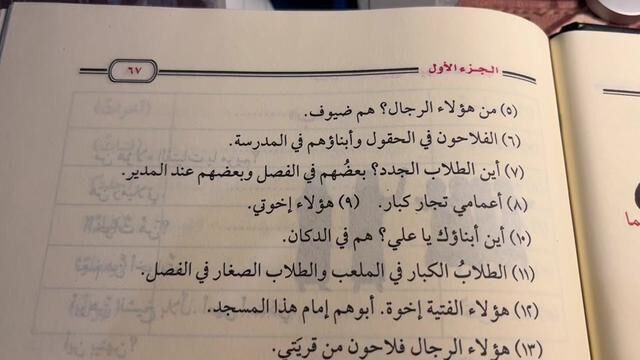 الجزء الأول ٦٧
(٥) من هؤلاء الرجال؟ هم ضيوف.
(٦) الفلاحون في الحقول وأبناؤهم في المدرسة.
(٧) أين الطلاب الجدد؟ بعضُهم في الفصل وبعضهم عند المدير.
(٨) أعمامي تجار كبار. (٩) هؤلاء إخوتي.
(١٠) أين أبناؤك يا علي؟ هم في الدكان.
(١١) الطلابُ الكبار في الملعب والطلاب الصغار في الفصل.
(١٢) هؤلاء الفتية إخوة. أبوهم إمام هذا المسجد.
(١٣) هؤلاء الرجال فلاحون من قريَتي.